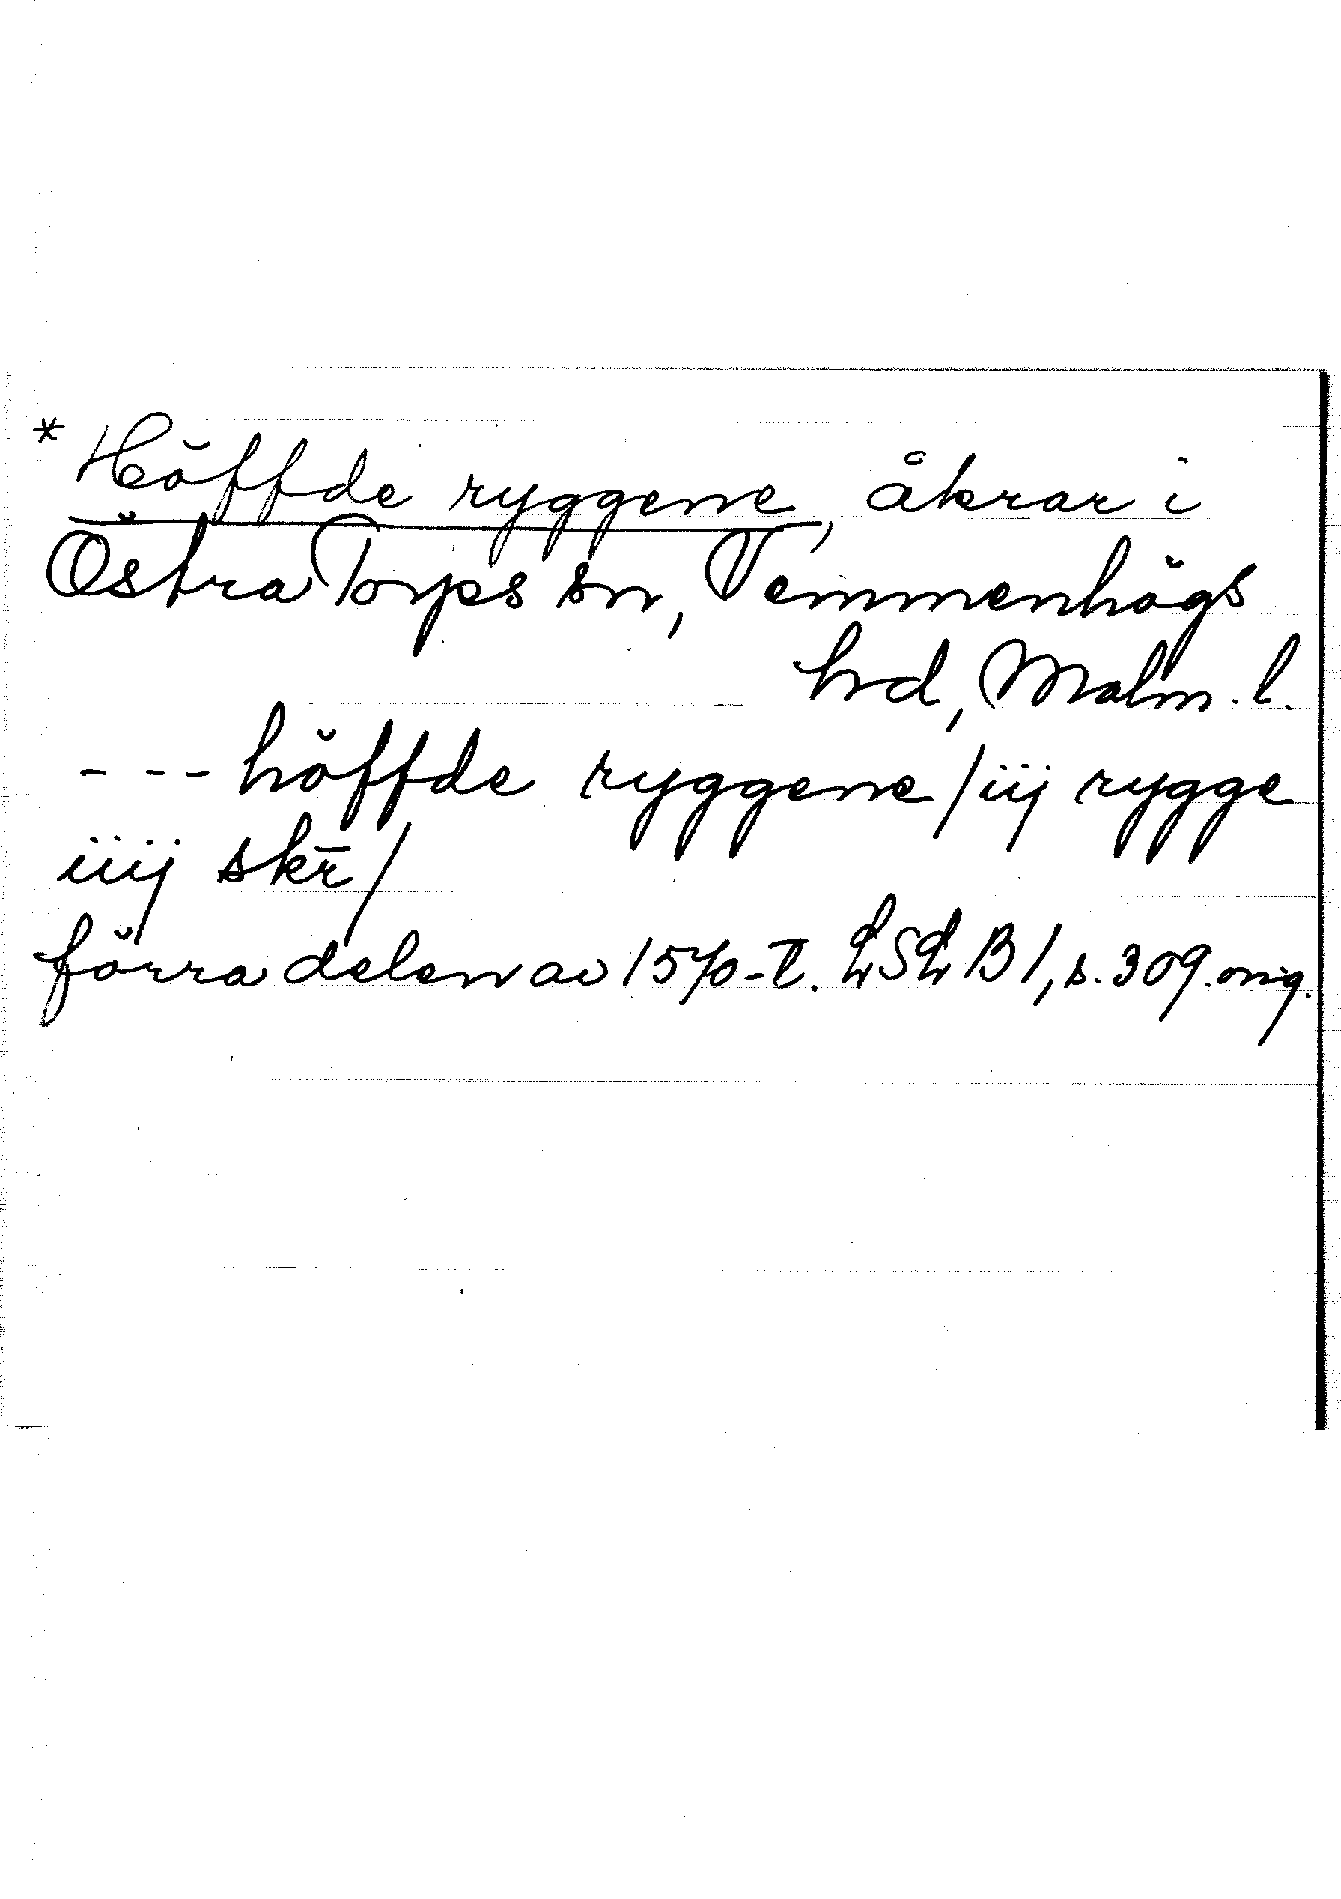 * Höffde ryggene, åkrar i
Östra Torps sn, Vemmenhögs
hd, Malm. l.
- - - höffde ryggene / iij rygge
iiij skr̄ /
förra delen av 1570-t. LSL B 1, s. 309. orig.